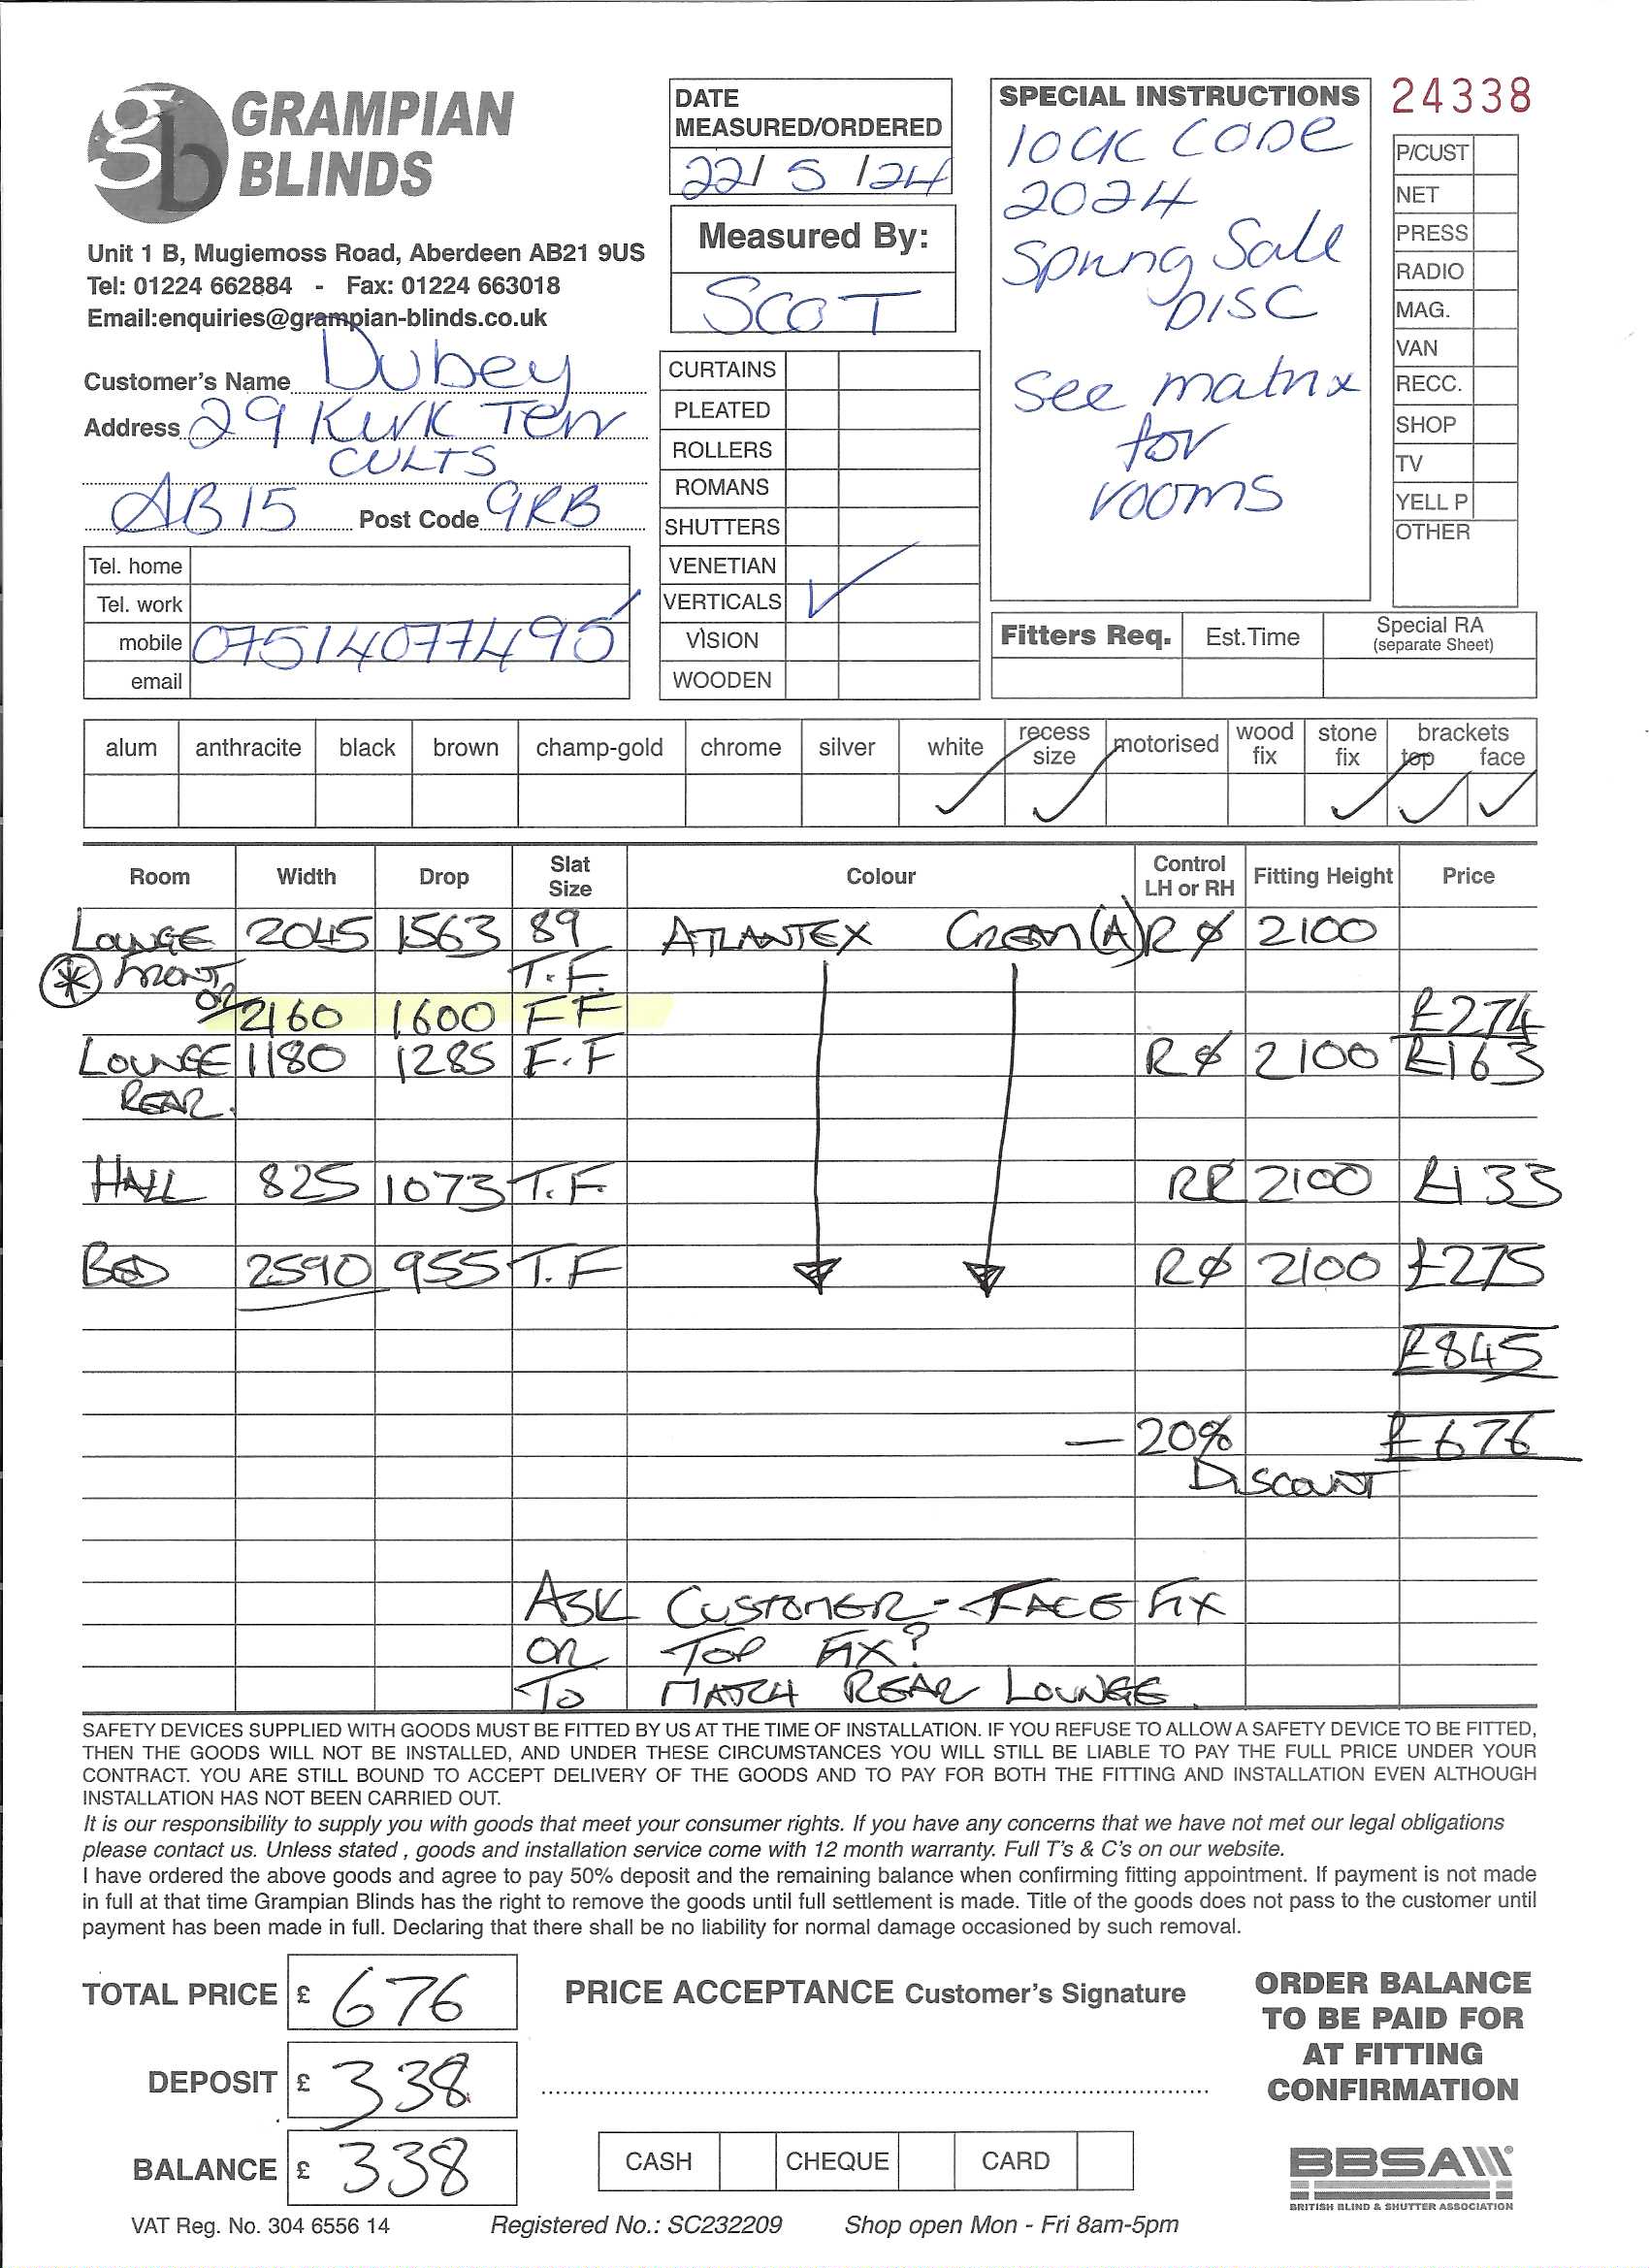 GRAMPIAN
BLINDS
Unit 1 B, Mugiemoss Road, Aberdeen AB21 9US
Tel: 01224 662884 - Fax: 01224 663018
Email:enquiries@grampian-blinds.co.uk
Customer's Name Dubey
Address 29 Kirk Terr
CULTS
AB15 Post Code 9RB
Tel. home
Tel. work
mobile 07514077495
email
DATE
MEASURED/ORDERED
22/ 5 /24
Measured By:
SCOT
CURTAINS
PLEATED
ROLLERS
ROMANS
SHUTTERS
VENETIAN
VERTICALS ✓
VISION
WOODEN
SPECIAL INSTRUCTIONS
lock CODE
2024
Spring Sale
DISC
See matrix
for
rooms
24338
P/CUST
NET
PRESS
RADIO
MAG.
VAN
RECC.
SHOP
TV
YELL P
OTHER
Fitters Req. Est.Time Special RA
(separate Sheet)
alum anthracite black brown champ-gold chrome silver white recess size motorised wood fix stone fix brackets top face
✓ ✓ ✓ ✓ ✓
Room Width Drop Slat Size Colour Control LH or RH Fitting Height Price
LOUNGE 2045 1563 89 ATLANTEX CREAM (A) RØ 2100
* FRONT T.F.
OR 2160 1600 FF £274
LOUNGE 1180 1285 F.F RØ 2100 £163
REAR.
HALL 825 1073 T.F. RR 2100 £133
BED 2590 955 T.F RØ 2100 £275
£845
— 20% £676
DISCOUNT
ASK CUSTOMER - FACE FIX
OR TOP FIX?
TO MATCH REAR LOUNGE.
SAFETY DEVICES SUPPLIED WITH GOODS MUST BE FITTED BY US AT THE TIME OF INSTALLATION. IF YOU REFUSE TO ALLOW A SAFETY DEVICE TO BE FITTED,
THEN THE GOODS WILL NOT BE INSTALLED, AND UNDER THESE CIRCUMSTANCES YOU WILL STILL BE LIABLE TO PAY THE FULL PRICE UNDER YOUR
CONTRACT. YOU ARE STILL BOUND TO ACCEPT DELIVERY OF THE GOODS AND TO PAY FOR BOTH THE FITTING AND INSTALLATION EVEN ALTHOUGH
INSTALLATION HAS NOT BEEN CARRIED OUT.
It is our responsibility to supply you with goods that meet your consumer rights. If you have any concerns that we have not met our legal obligations
please contact us. Unless stated , goods and installation service come with 12 month warranty. Full T's & C's on our website.
I have ordered the above goods and agree to pay 50% deposit and the remaining balance when confirming fitting appointment. If payment is not made
in full at that time Grampian Blinds has the right to remove the goods until full settlement is made. Title of the goods does not pass to the customer until
payment has been made in full. Declaring that there shall be no liability for normal damage occasioned by such removal.
TOTAL PRICE £ 676
DEPOSIT £ 338
BALANCE £ 338
PRICE ACCEPTANCE Customer's Signature
CASH CHEQUE CARD
ORDER BALANCE
TO BE PAID FOR
AT FITTING
CONFIRMATION
BBSA
BRITISH BLIND & SHUTTER ASSOCIATION
VAT Reg. No. 304 6556 14 Registered No.: SC232209 Shop open Mon - Fri 8am-5pm